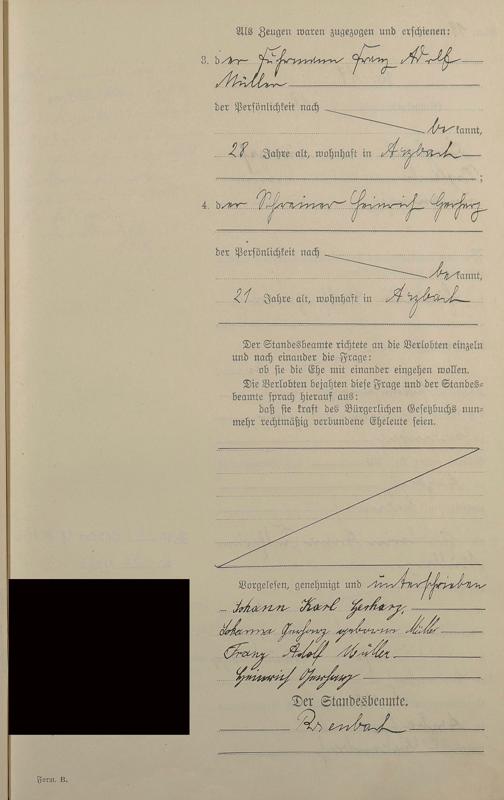 Als Zeugen waren zugezogen und erschienen:
3. der Fuhrmann Franz Adolf
Müller
der Persönlichkeit nach
bekannt,
28 Jahre alt, wohnhaft in Arzbach
;
4. der Schreiner Heinrich Gerharz
der Persönlichkeit nach
bekannt,
21 Jahre alt, wohnhaft in Arzbach
Der Standesbeamte richtete an die Verlobten einzeln
und nach einander die Frage:
ob sie die Ehe mit einander eingehen wollen.
Die Verlobten bejahten diese Frage und der Standes-
beamte sprach hierauf aus:
daß sie kraft des Bürgerlichen Gesetzbuchs nun-
mehr rechtmäßig verbundene Eheleute seien.
Vorgelesen, genehmigt und unterschrieben
Johann Karl Gerharz.
Johanna Gerharz geborene Müller
Franz Adolf Müller
Heinrich Gerharz
Der Standesbeamte.
Form. B.